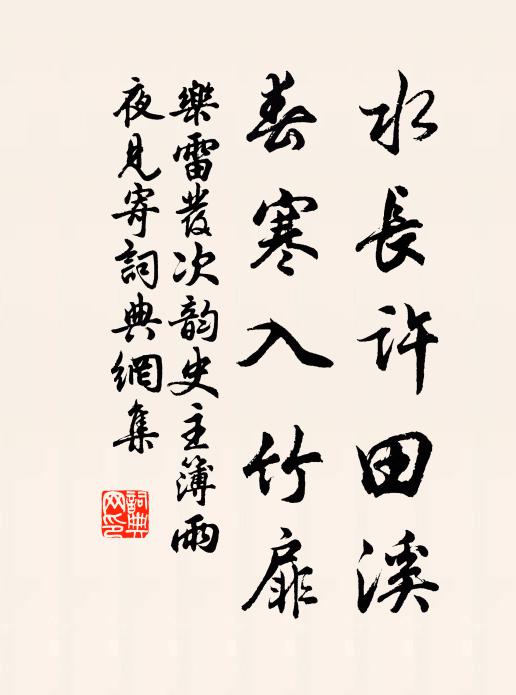 水長許田溪
春寒入竹扉
樂雷發次韵史主簿雨
夜見寄詞典網集
詞典網印